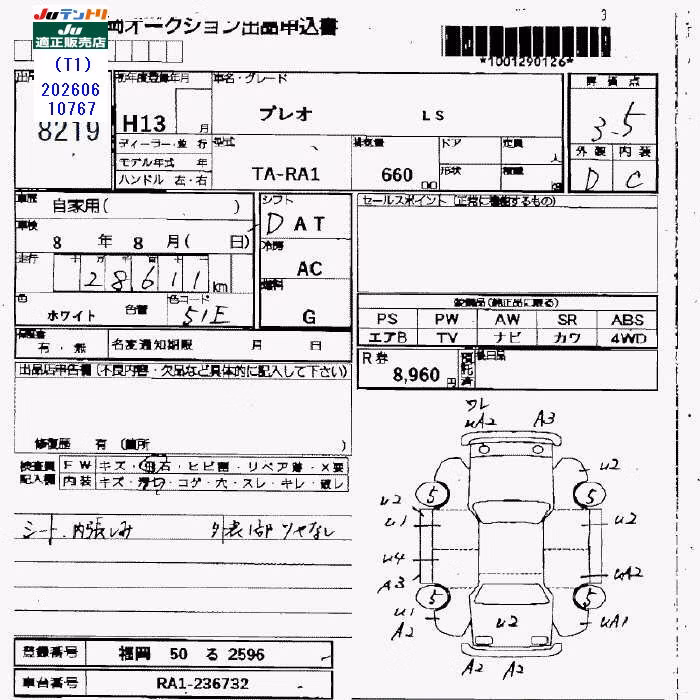 Juテントリ
Ju
適正販売店
(T1)
202606
10767
オークション出品申込書
3
*1001290126*
8219
初年度登録年月
H13 月
車名・グレード
プレオ LS
評価点
3.5
外装 内装
D C
ディーラー・並行
モデル年式 年
ハンドル 左・右
型式
TA-RA1
排気量
660
ドア
形状
定員
人
車歴
自家用( )
車検
8 年 8 月( 日)
走行
2 8,6 1 1 km
色
ホワイト
色替
色コード
51E
シフト
D A T
冷房
AC
燃料
G
セールスポイント(正常に機能するもの)
装備品(純正品に限る)
PS PW AW SR ABS
エアB TV ナビ カワ 4WD
保証書
有・無
名変通知期限 月 日
R券
8,960 円
預託済
出品店申告欄(不良内容・欠品など具体的に記入して下さい)
修復歴 有(箇所 )
検査員
記入欄
FW キズ・飛石・ヒビ割・リペア済・X要
内装 キズ・コゲ・穴・スレ・キレ・破レ
シート、内張しみ
ワレ
uA2 A3
u2
5 5
u2
u1
u2
u4
A3
uA2
5 5
u1
A2
uA1
u2
A2 A2
登録番号 福岡 50 る 2596
車台番号 RA1-236732